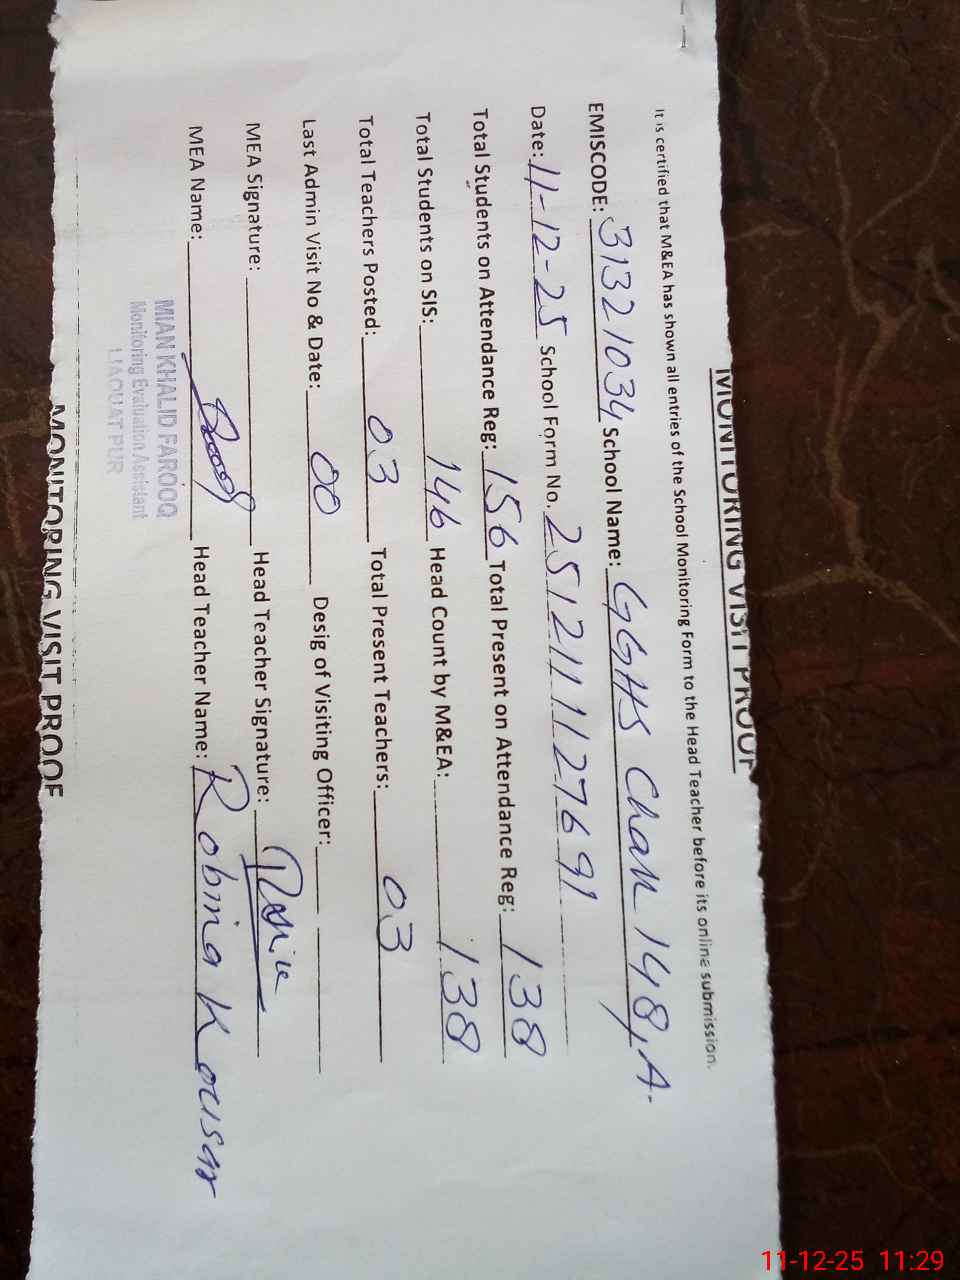 MONITORING VISIT PROOF
It is certified that M&EA has shown all entries of the School Monitoring Form to the Head Teacher before its online submission.
EMISCODE: 31321034 School Name: GGHS Chak 148,A.
Date: 11-12-25 School Form No. 2512111127691
Total Students on Attendance Reg: 156 Total Present on Attendance Reg: 138
Total Students on SIS: 146 Head Count by M&EA: 138
Total Teachers Posted: 03 Total Present Teachers: 03
Last Admin Visit No & Date: 00 Desig of Visiting Officer:
MEA Signature: Head Teacher Signature:
MEA Name: Head Teacher Name: Robina Kousar
MIAN KHALID FAROOQ
Monitoring Evaluation Assistant
LIAQUAT PUR
MONITORING VISIT PROOF
11-12-25 11:29